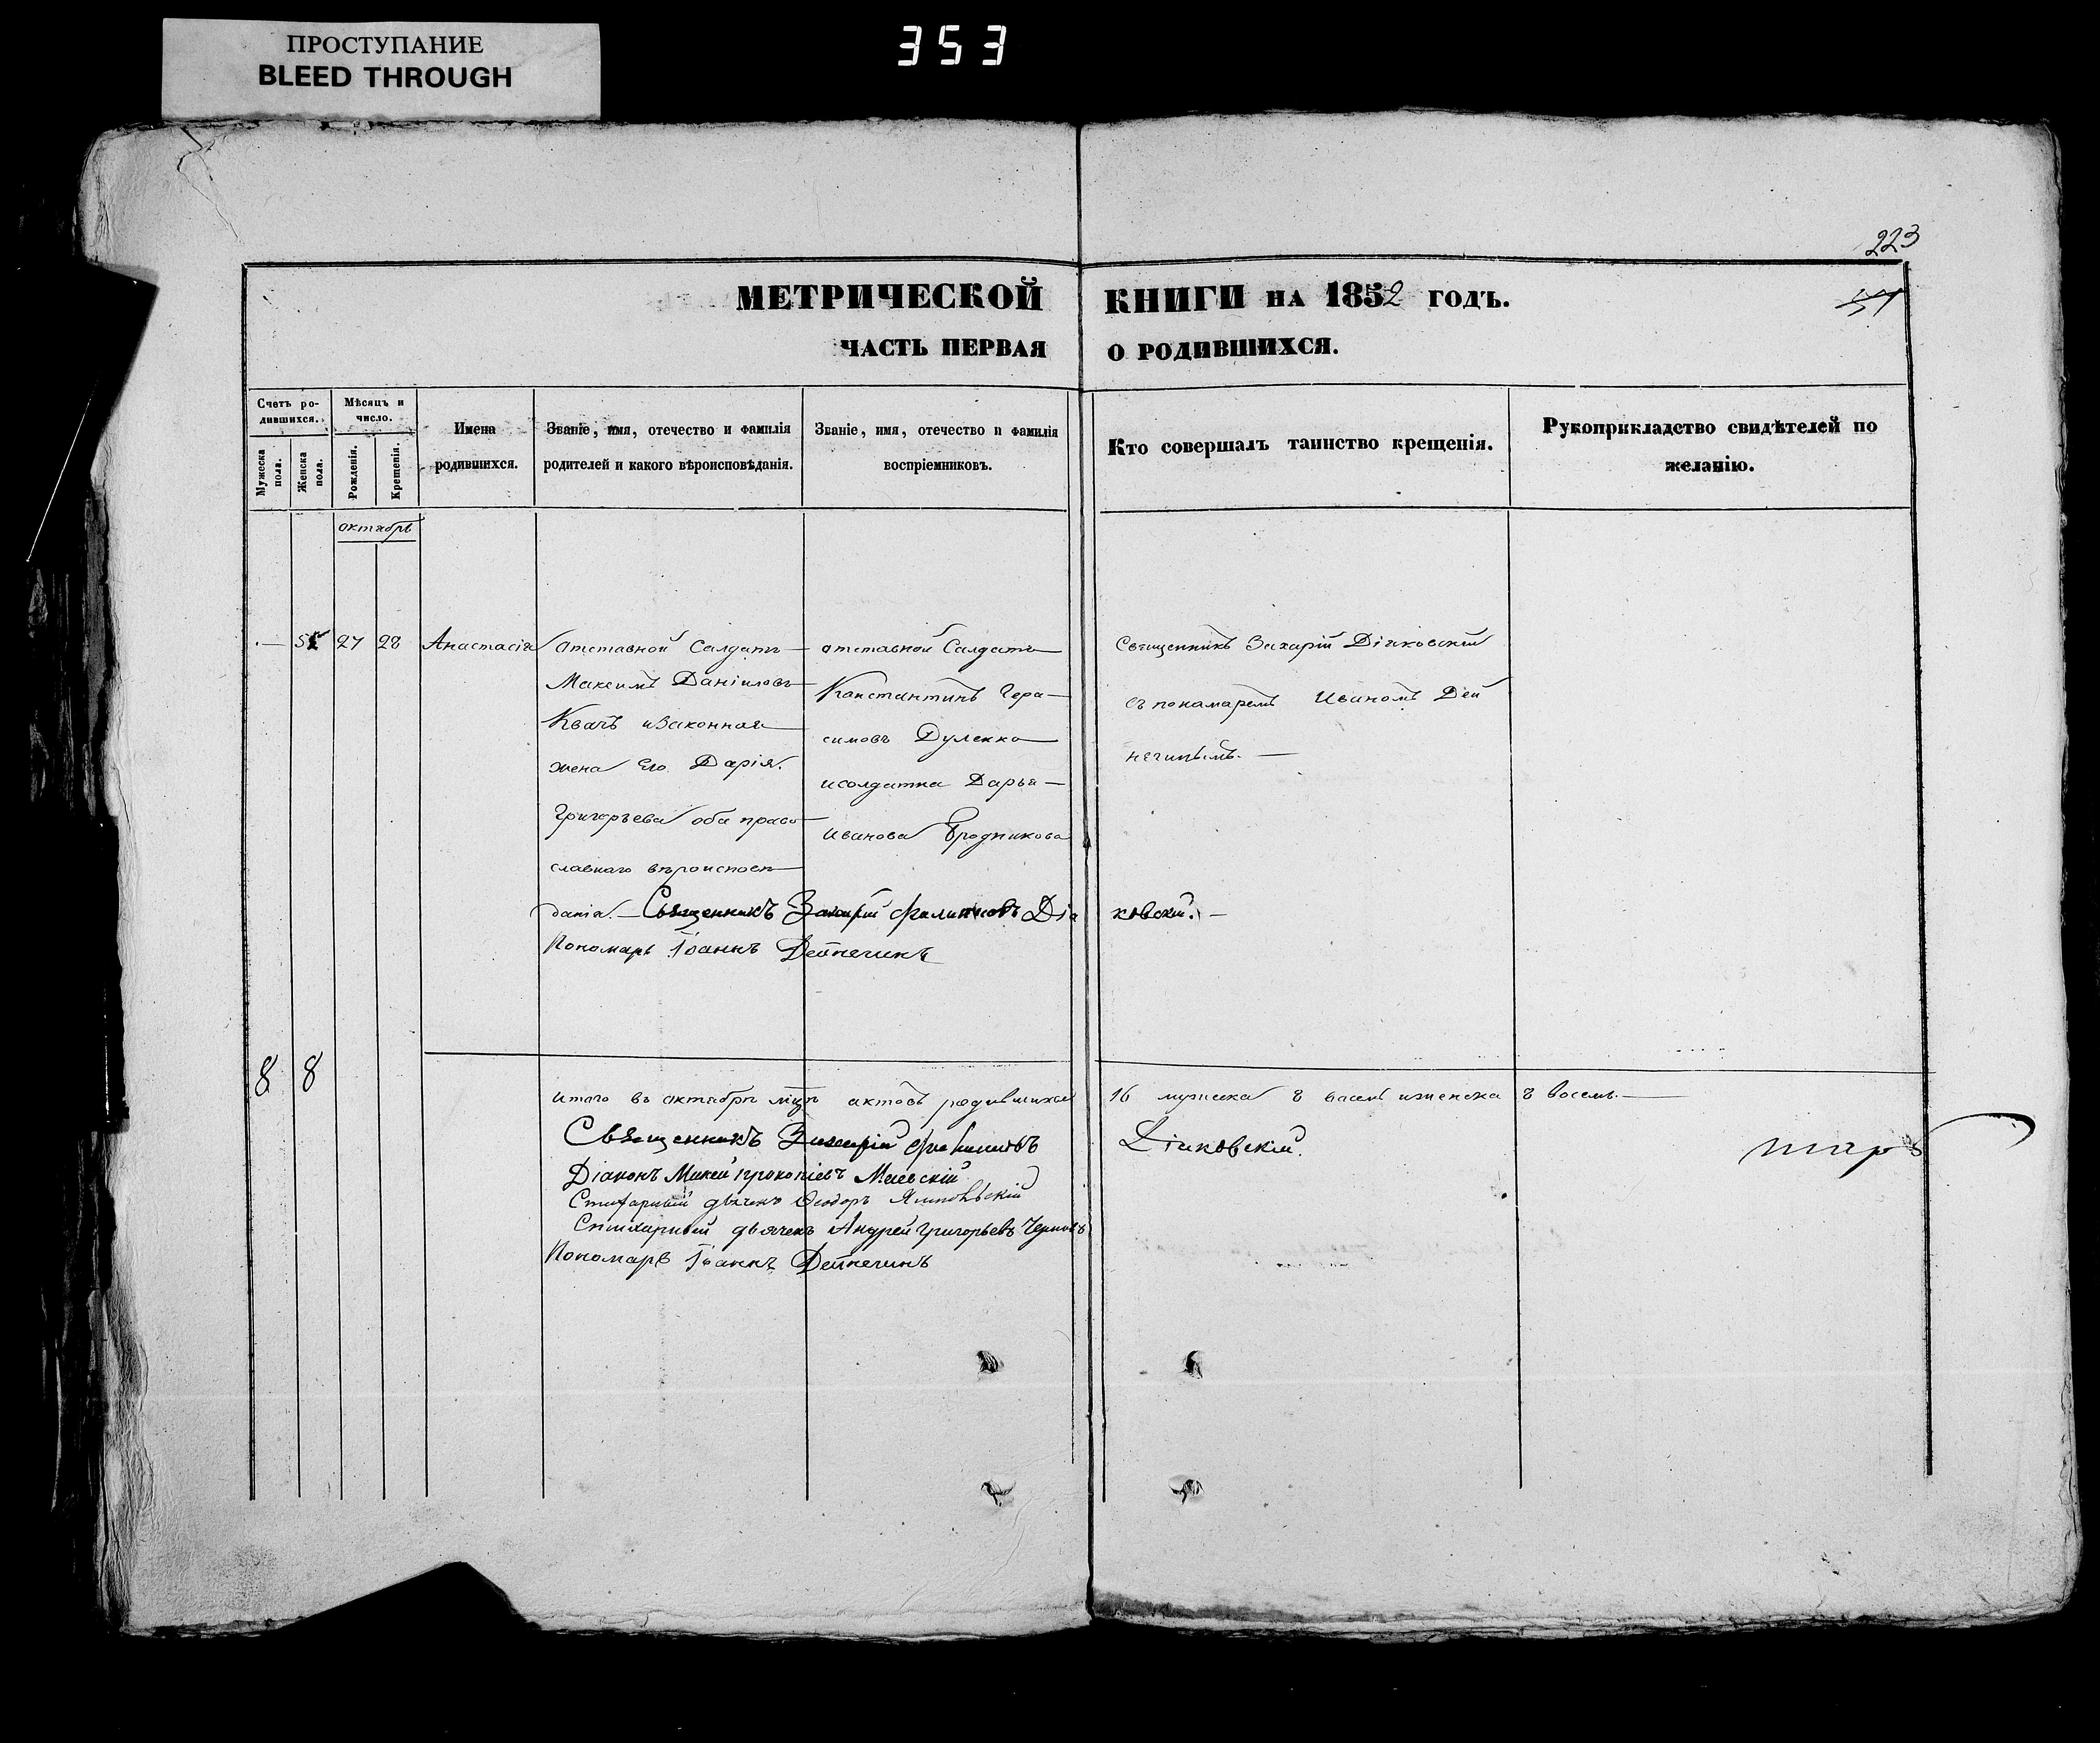 ПРОСТУПАНИЕ
BLEED THROUGH
353
223
МЕТРИЧЕСКОЙ КНИГИ НА 1852 ГОДЪ.
ЧАСТЬ ПЕРВАЯ О РОДИВШИХСЯ.
Счетъ ро-
дившихся.
Мужеска пола.
Женска пола.
Мѣсяцъ и
число.
Рожденія.
Крещенія.
Имена
родившихся.
Званіе, имя, отечество и фамилія
родителей и какого вѣроисповѣданія.
Званіе, имя, отечество и фамилія
воспріемниковъ.
Кто совершалъ таинство крещенія.
Рукоприкладство свидѣтелей по
желанію.
октябрь
27 28 Анастасія
отставной Салдатъ
Максимъ Даніиловъ
Квачъ изаконная
жена Его Дарія
Григорьева оба право
славнаго вѣроисповѣ
данія.
отставной Салдатъ
Константинъ Гера
симовъ Дуленко
исолдатка Дарья
Иванова Бродникова
Священникъ Захарій Діяковскій
съ понамаремъ Иваномъ Дей
нечинымъ.
Священникъ Захарій Филиповъ Дія ковскій.
Пономарь Іоаннъ Дейнечинъ
8 8
Итого въ октябрѣ мцѣ актовъ родившихся 16 мужеска 8 восемь иженска 8 восемь.
Священникъ Захарій Филиповъ Діяковскій.
Діаконъ Михей Прокопіевъ
Стихарный дьячекъ Ѳеодоръ
Стихарный дьячекъ Андрей Григорьевъ
Пономарь Іоаннъ Дейнечинъ
тарь